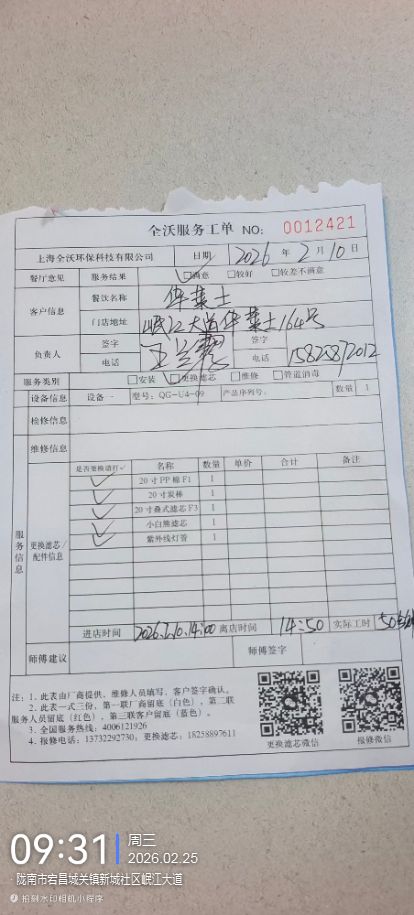 全沃服务工单 NO: 0012421
上海全沃环保科技有限公司 日期 2026 年 2 月 10 日
餐厅意见 服务结果 □满意 □较好 □较差不满意
客户信息 餐饮名称 华莱士
门店地址 岷江大道华莱士164号
负责人 签字 签字
电话 电话 15825872012
服务类别 □安装 □更换滤芯 □维修 □管道消毒
设备信息 设备一 型号: QG-U4-09 产品序列号: 数量 1
检修信息
维修信息
服务信息 更换滤芯/配件信息
是否更换请打✓ 名称 数量 单价 合计 备注
✓ 20寸PP棉F1 1
✓ 20寸炭棒 1
✓ 20寸叠式滤芯F3 1
✓ 小白熊滤芯 1
✓ 紫外线灯管 1
进店时间 2026.2.10.14:00 离店时间 14:50 实际工时 50分钟
师傅建议 师傅签字
注: 1. 此表由厂商提供、维修人员填写, 客户签字确认。
2. 此表一式三份, 第一联厂商留底(白色), 第二联
服务人员留底(红色), 第三联客户留底(蓝色)。
3. 全国服务热线: 4006121926
4. 报修电话: 13732292730, 更换滤芯: 18258897611
更换滤芯微信 报修微信
09:31 周三
2026.02.25
·陇南市宕昌城关镇新城社区岷江大道
拍刻水印相机小程序